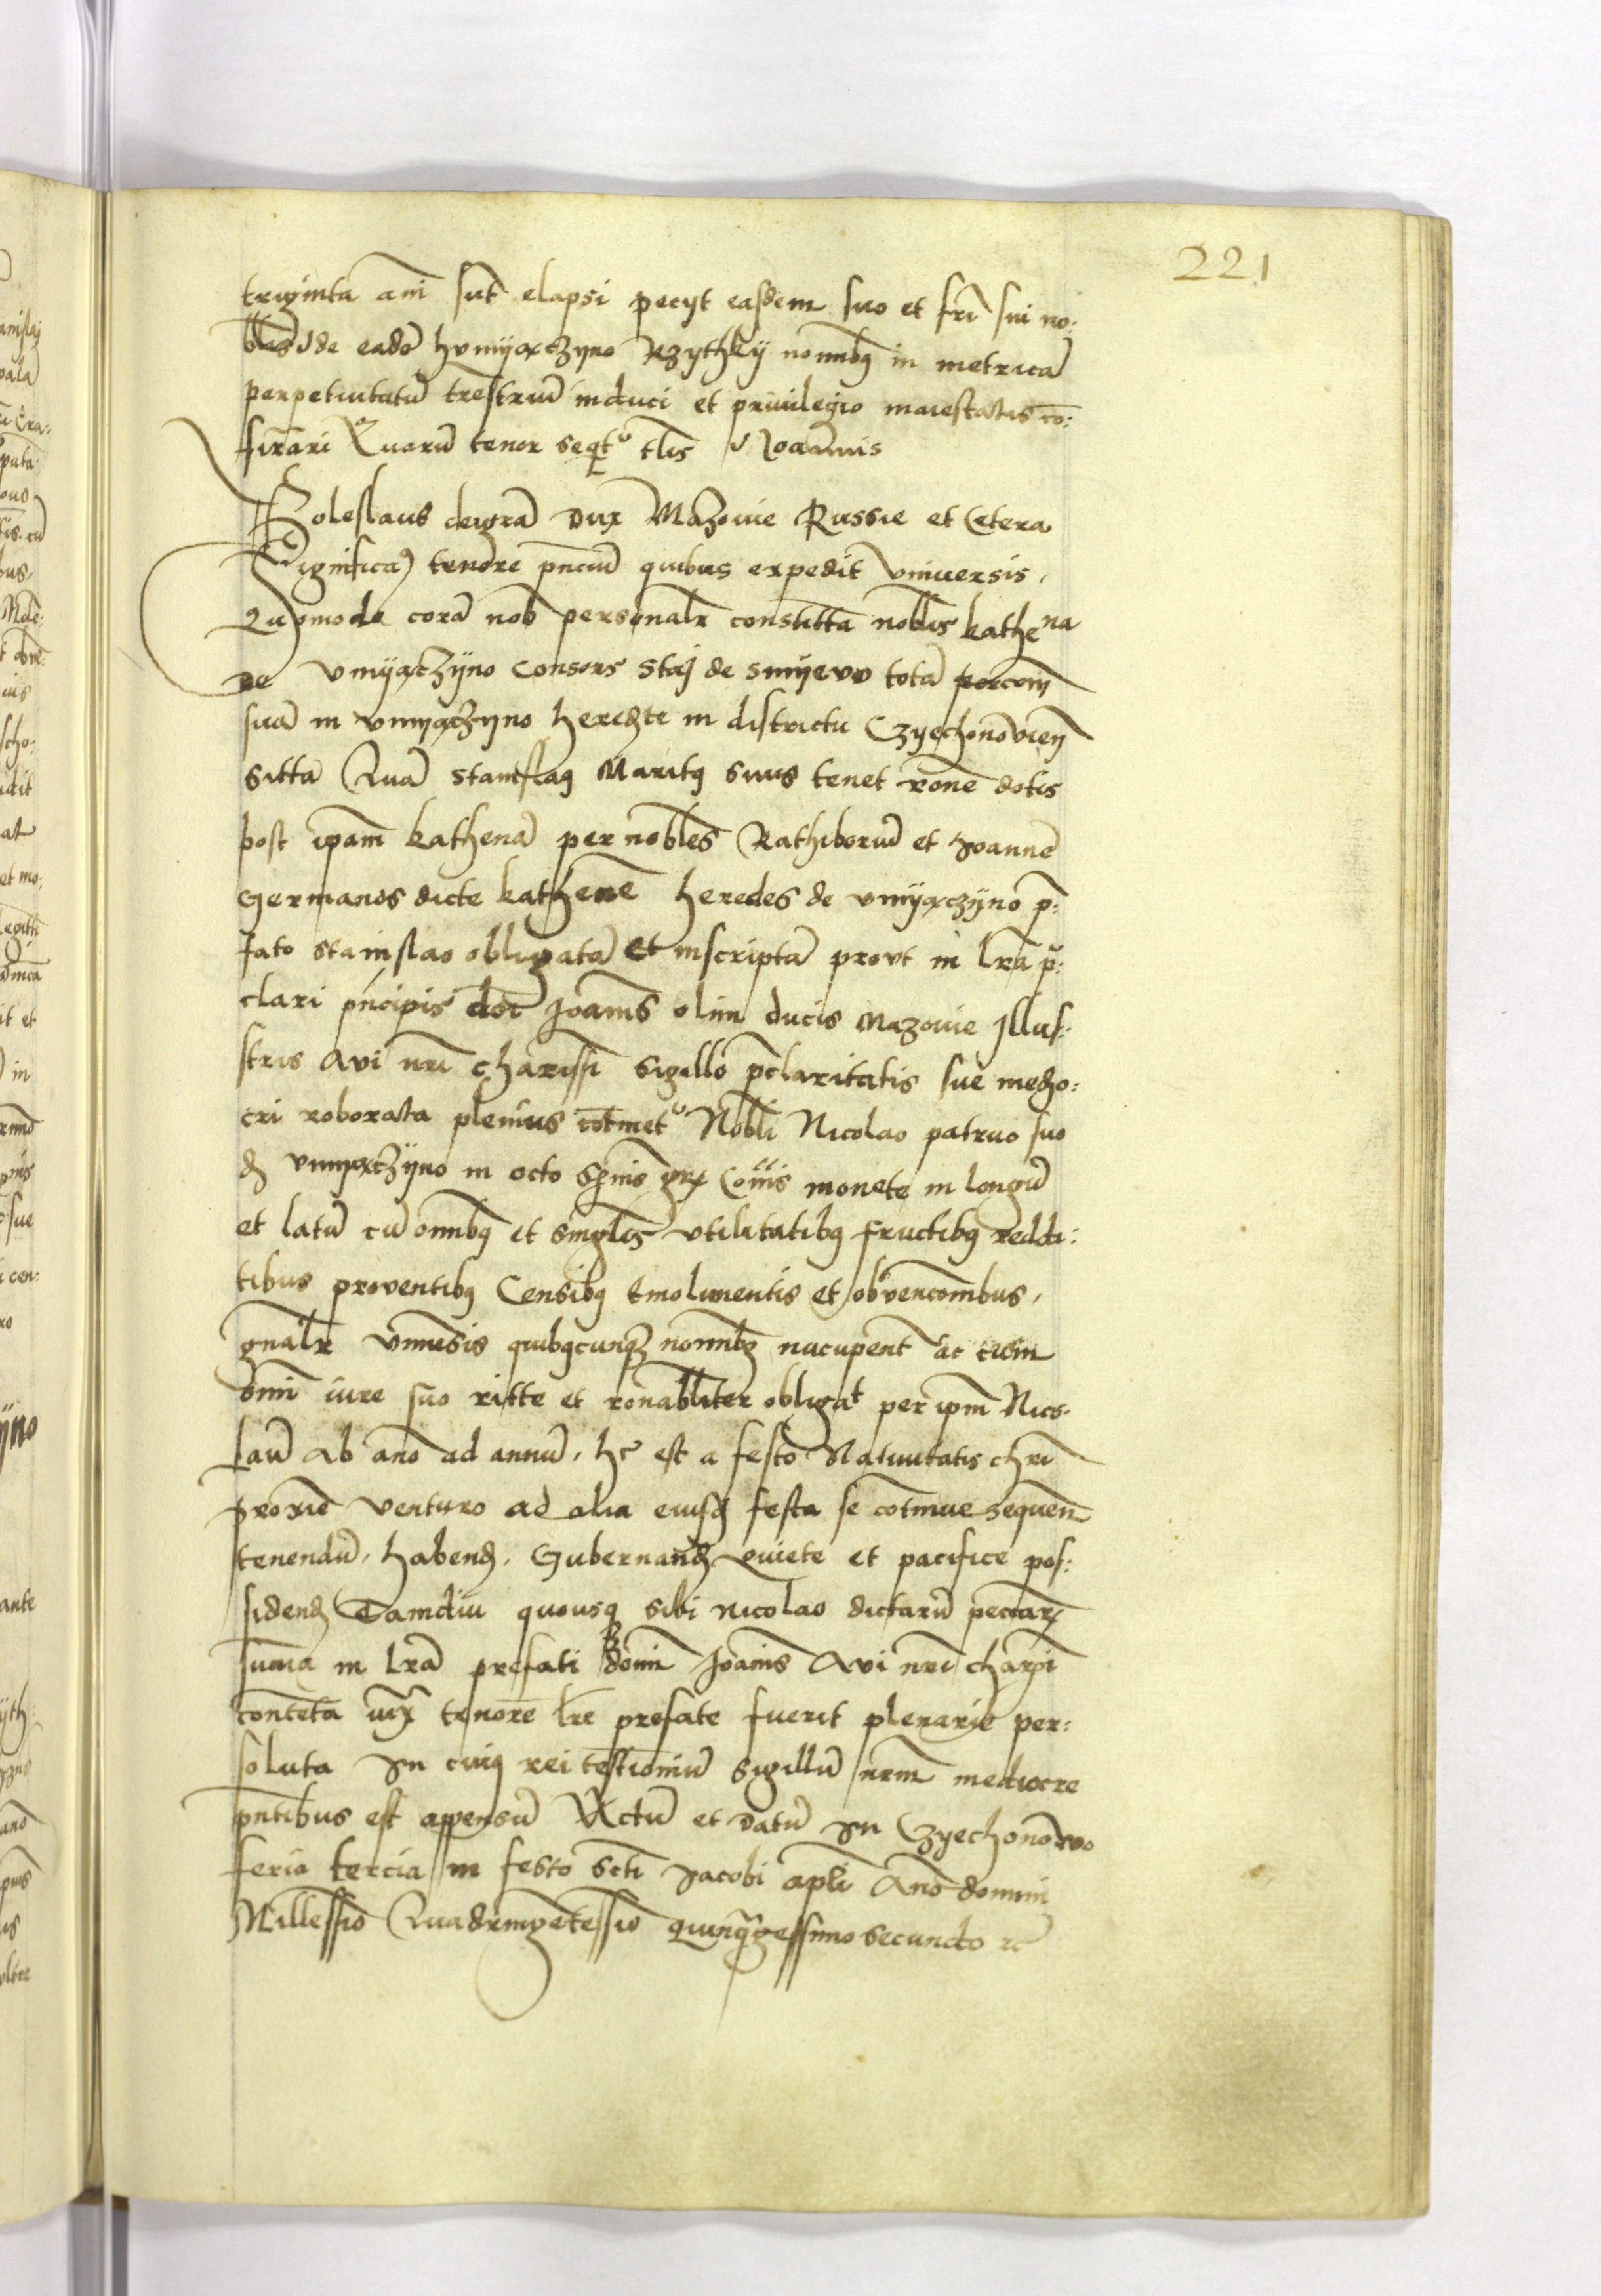 221
triginta anī sūt elapsi pecyt easdem suo et frī sui no:
blis de eadē hvmyączyno Rzythky nomībꝫ in metricā
perpetuitatū trestriū induci et privilegio maiestatis cō:
firari Quarū tenor seqt' tlis Joannis
Boleslaus deigrā Dux Mazovie Russie et Cetera
Significaꝰ tenore pn̄ciū quibus expedit vniversis,
Quomodo corā nob personalr constitta nobl̄is kathena
de vmyączyno Consors Staj de smyewo totā porconȳ
suā in vmyączyno heredze in districtu Czyechonōvien̄
sitta Quā Stanislaꝰ Maritꝰ suus tenet rōne dotis
post ipam kathenā per nobl̄es Rathiborū et Joannē
Germanos dicte kathene heredes de vmyączyno p̄:
fato stanislao obligatā et inscriptā provt in lrā p̄:
clari pn̄cipis doc̄ Joanīs olim ducis Mazovie Illus:
stris Avi nrī charissī sigillo p̄claritatis sue medio:
cri roborata plenius cōtinet' Nobl̄i Nicolao patruo suo
de vmyączyno in octo sxnis grꝝ Cōīs monete in longū
et latū cū omībꝫ et singl̄is vtilitatibꝫ fructibꝫ reddi:
tibus proventibꝫ Censibꝫ Emolimentis et obvencōnibus,
gnalr vniūsis quibꝫcunqꝫ nomībꝫ nūcupent̄ ac cum
omī iure suo ritte et rōnabl̄iter obligat̄ per ipm̄ Nico-
laū Ab anō ad annū, hc̄ est a festo Nativitatis chrī
proxīe venturo ad alia eiusdē festa se cōtinue sequen̄
tenendū, habend, Gubernand quiete et pacifice pos:
sidend Tamdiu quousqꝫ sibi nicolao dictarū peccarꝝ
suma in lrā prefati domī Joanīs Avi nrī charꝫī
contēta iux tenorē lrē prefate fuerit plenarie per:
soluta In cuiꝰ rei testioniū sigillū nrm̄ mediocre
pn̄tibus est appensū Actū et Datū In Czyechonōwo
feria tercia in festo Scti Jacobi apl̄i Anō domini
Millessīo Quadringētessīo quinqagessimo secundo rc̄